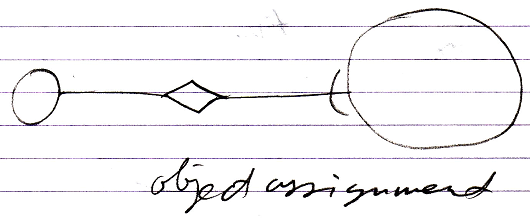 object assignment